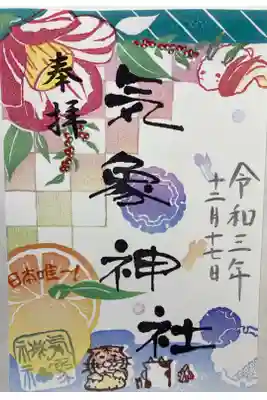 奉拝
気象神社
令和三年
十二月十七日
日本唯一